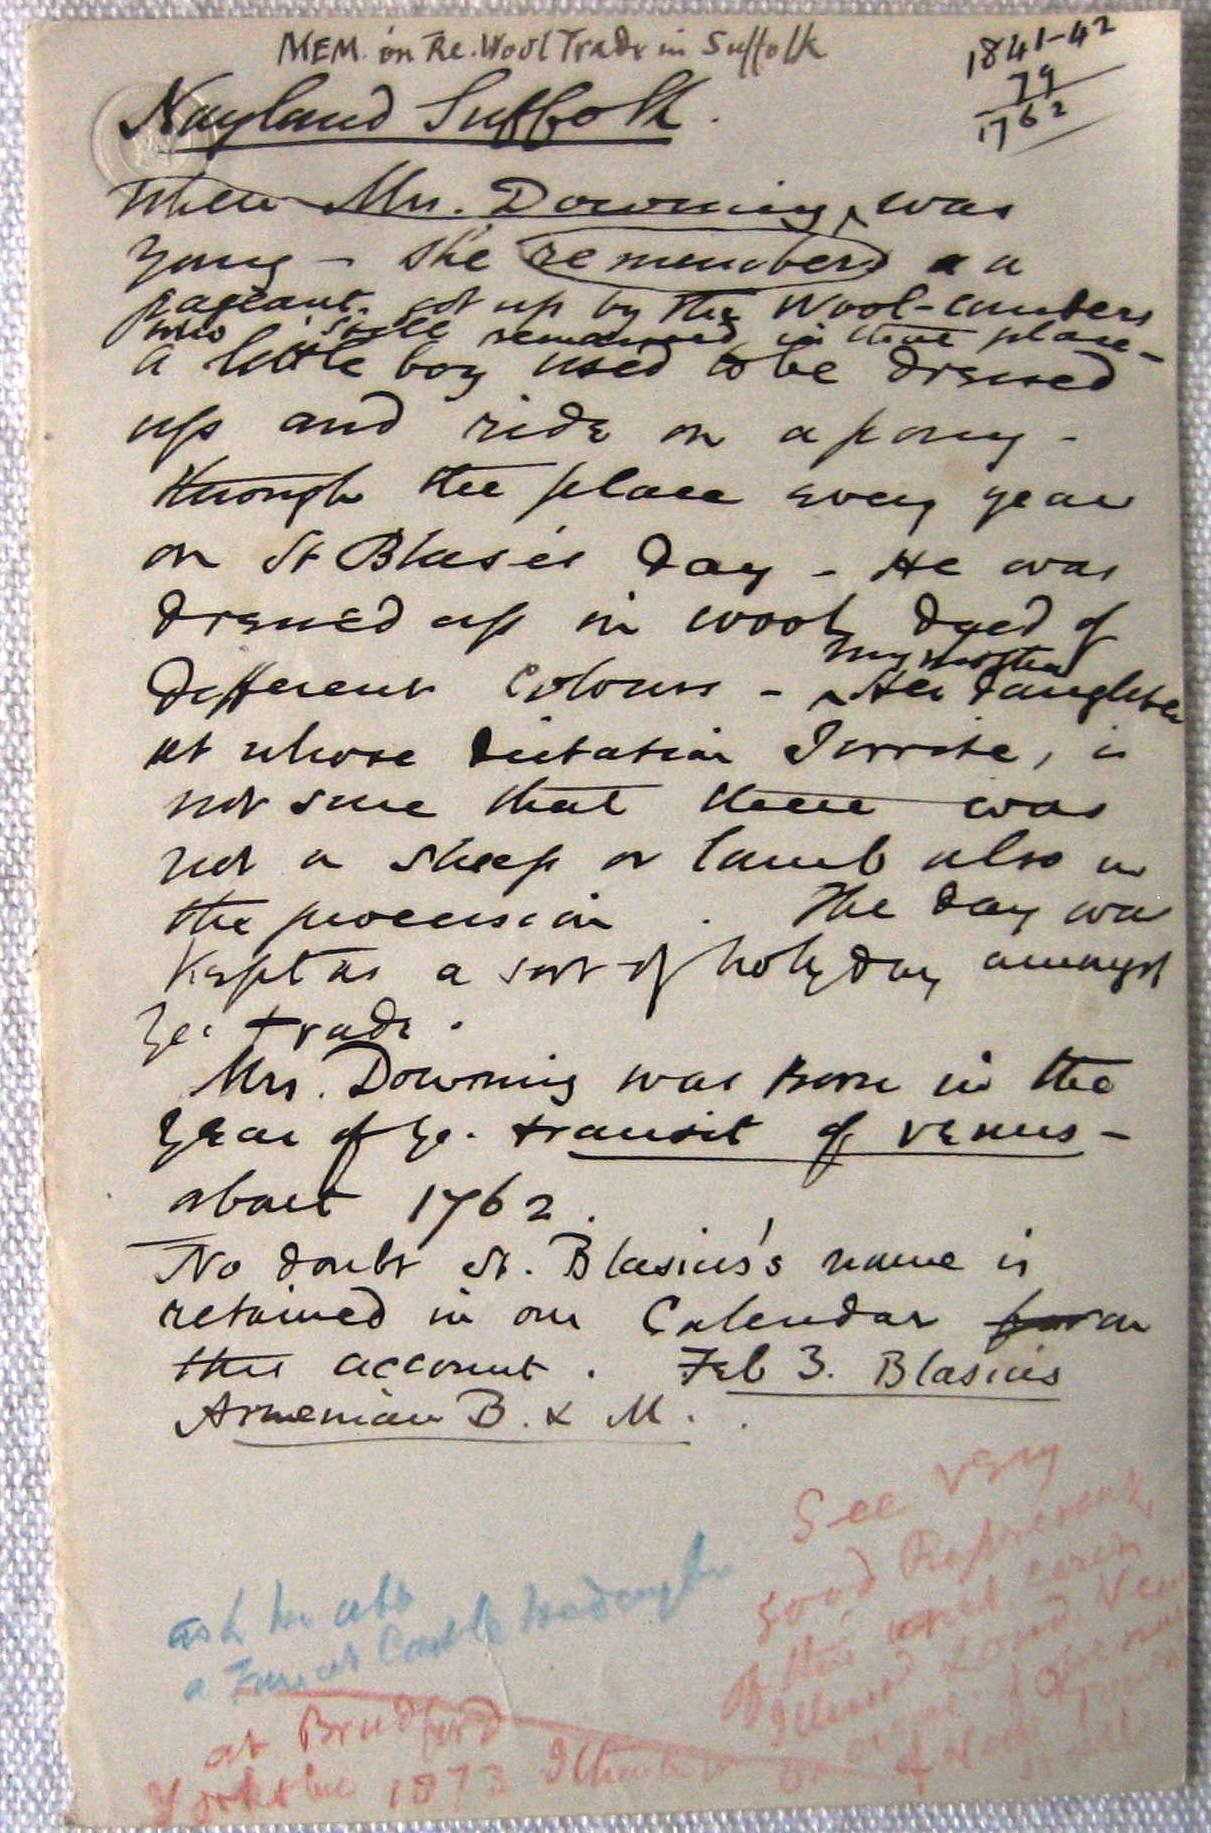 MEM. on Ye. Wool Trade in Suffolk
1841-42
79
1762
Nayland Suffolk.
When Mrs. Downing, was
young - she remembers a
pageant. got up by the Wool-combers
who still remained in that place -
a little boy used to be dressed
up and ride on a pony -
through the place every year
on St Blase's Day - He was
dressed up in wool dyed of
my mother
different colours - Her daughter
at whose dictation I write, is
not sure that there was
not a sheep or lamb also in
the procession . The day was
Kept as a sort of holyday amongst
Ye. trade.
Mrs. Downing was born in the
Year of Ye. transit of Venus -
about 1762.
No doubt St. Blasius's name is
retained in our Calendar for on
this account. Feb 3. Blasius
Armenian B. & M.
See very
good
of this
ask her abt
a Castle
at Bradford
Yorkshire 1873